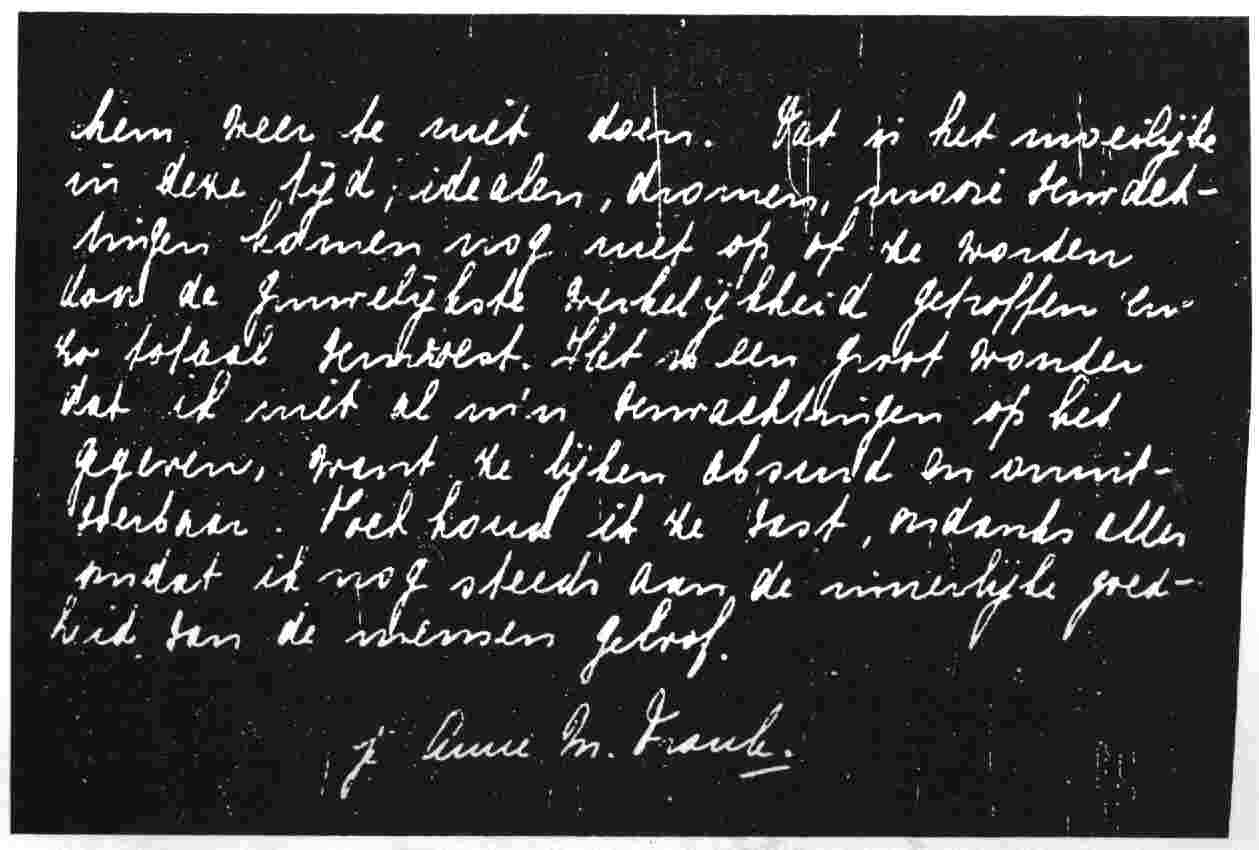 hem weer te niet doen. Dat is het moeilijke
in deze tijd, idealen, dromen, mooie verwach-
tingen komen nog niet op of ze worden
door de gruwelijkste werkelijkheid getroffen en
zo totaal verwoest. Het is een groot wonder
dat ik niet al m'n verwachtingen op heb
gegeven, want ze lijken absurd en onuit-
voerbaar. Toch houd ik ze vast, ondanks alles
omdat ik nog steeds aan de innerlijke goed-
heid van de mensen geloof.
je Anne M. Frank.